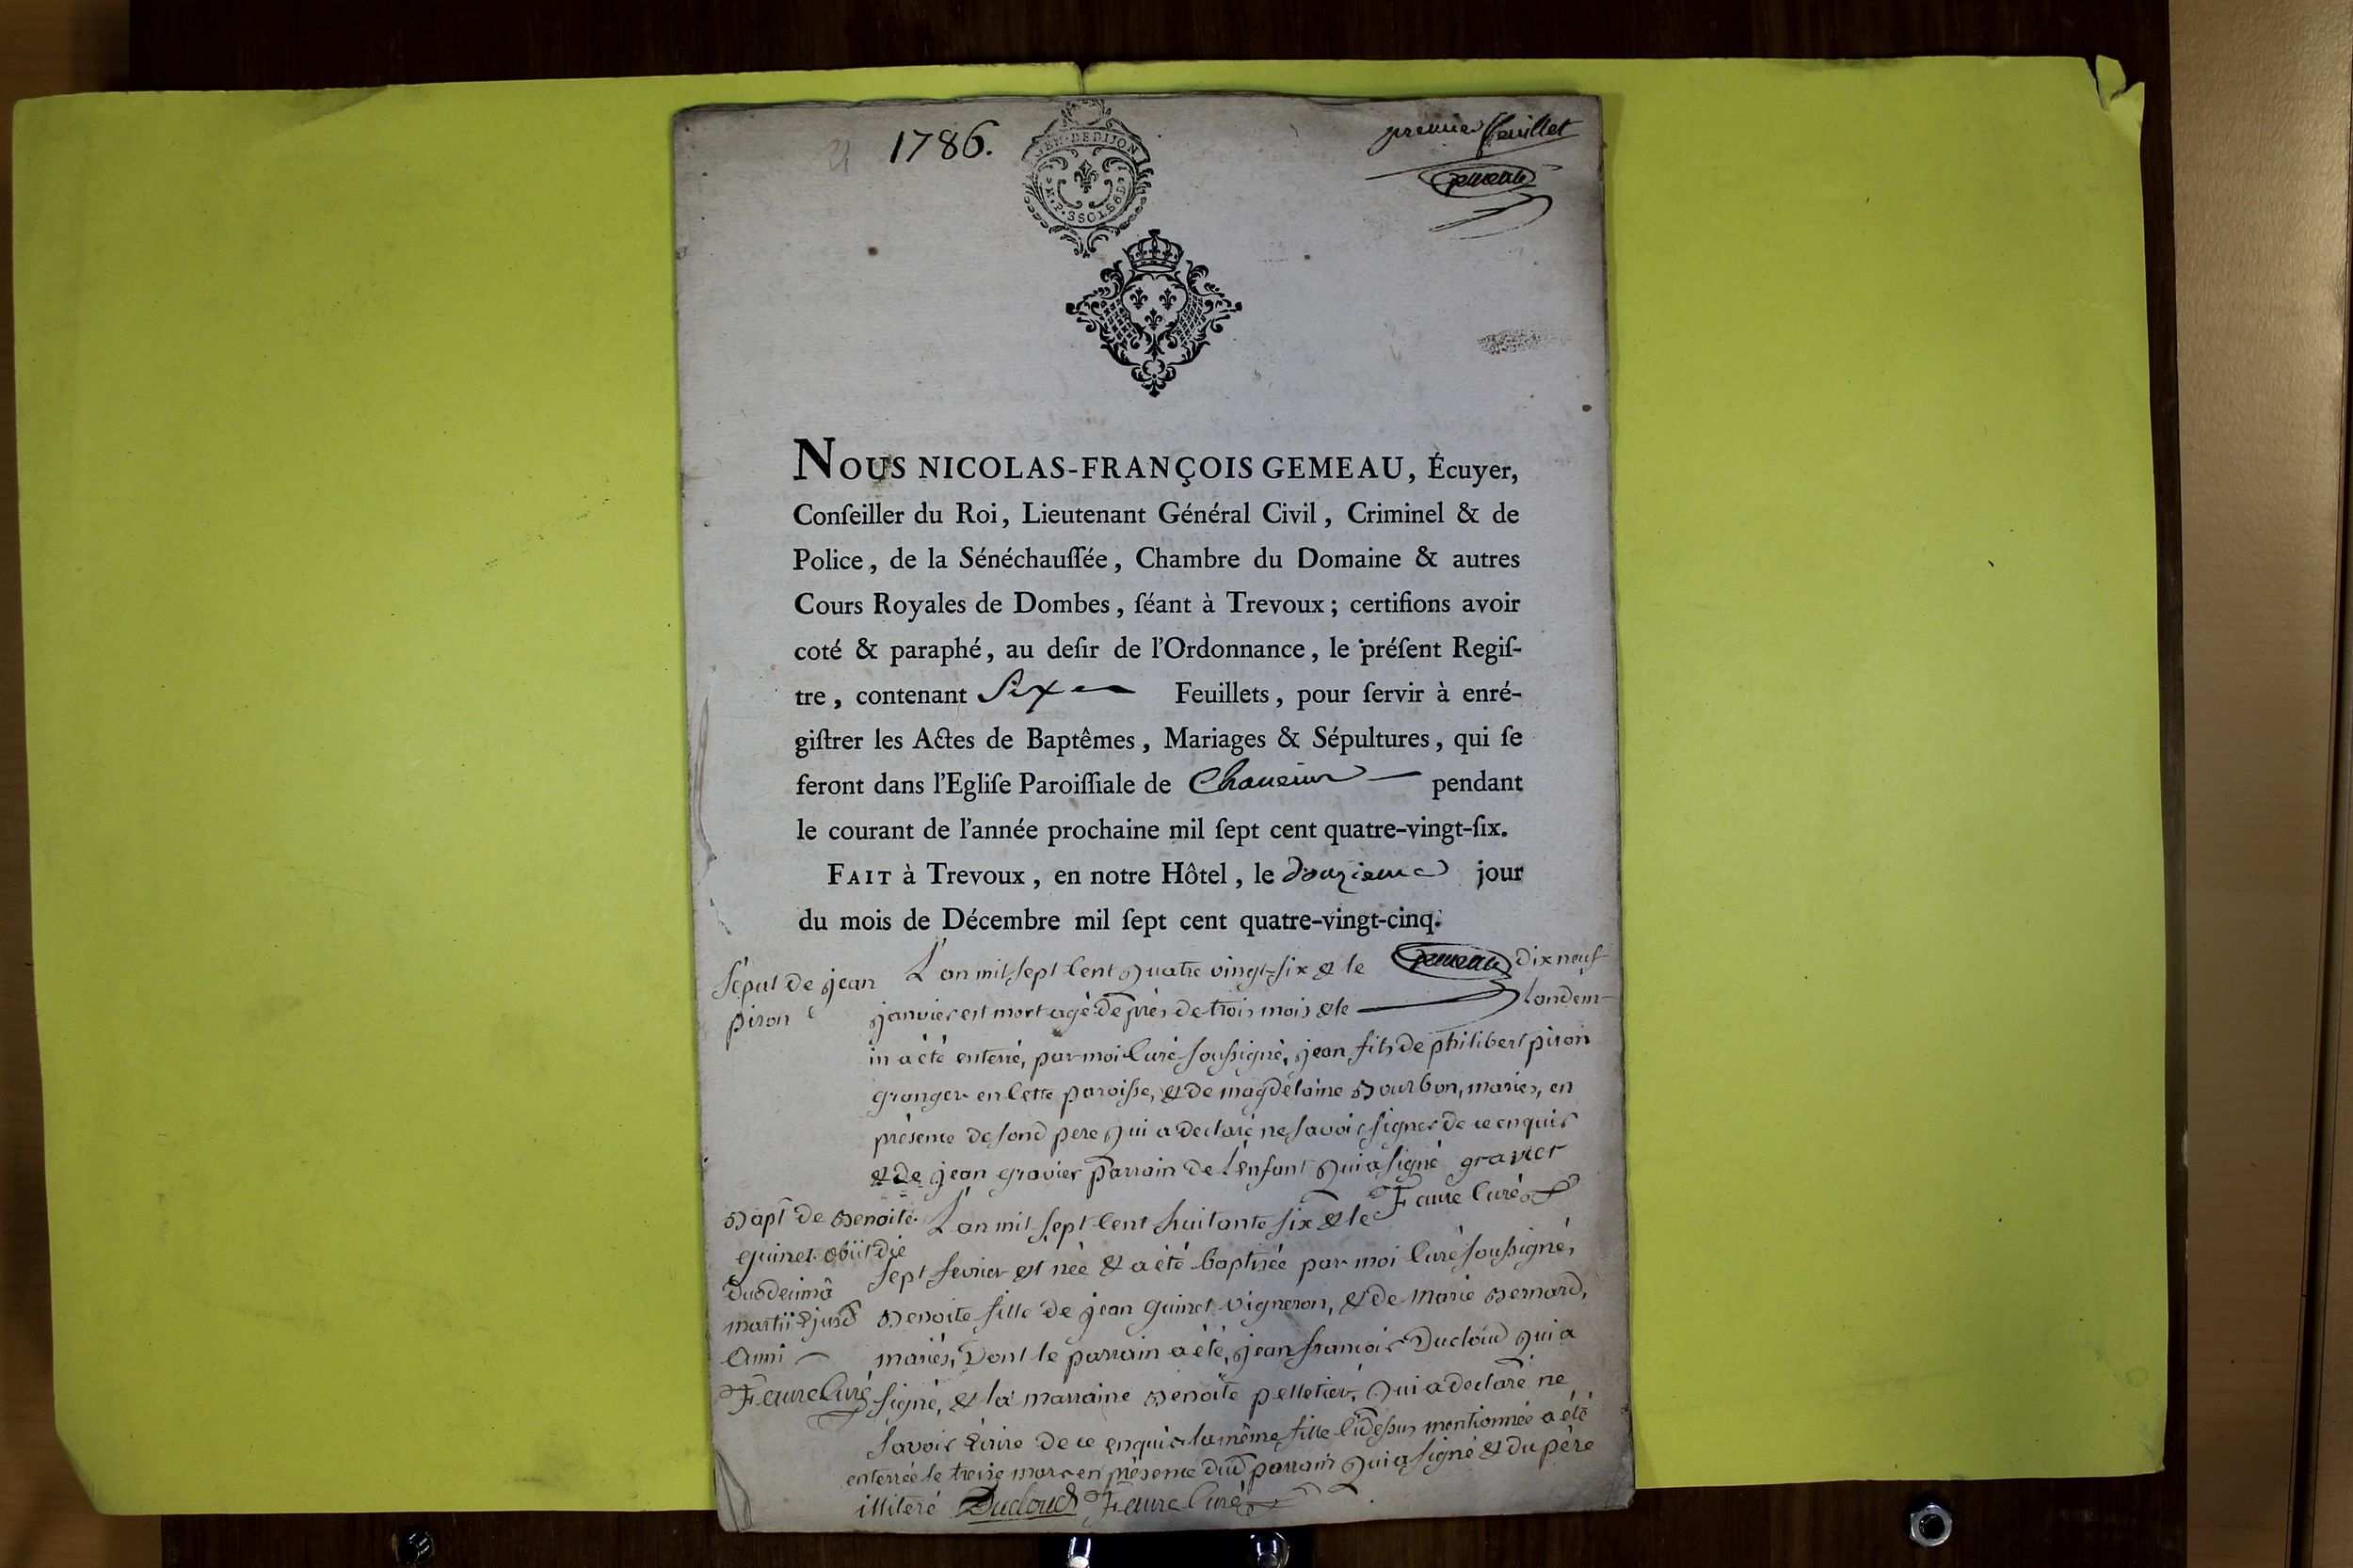 1786.
GEN. DE DIJON
M.P. 3 SOLS 6 D.
premier feuillet
Gemeau
NOUS NICOLAS-FRANÇOIS GEMEAU, Écuyer,
Conſeiller du Roi, Lieutenant Général Civil, Criminel & de
Police, de la Sénéchauſſée, Chambre du Domaine & autres
Cours Royales de Dombes, ſéant à Trevoux; certifions avoir
coté & paraphé, au deſir de l'Ordonnance, le préſent Regiſ-
tre, contenant Six Feuillets, pour ſervir à enré-
giſtrer les Actes de Baptêmes, Mariages & Sépultures, qui ſe
feront dans l'Egliſe Paroiſſiale de Chaneins pendant
le courant de l'année prochaine mil ſept cent quatre-vingt-ſix.
FAIT à Trevoux, en notre Hôtel, le douzieme jour
du mois de Décembre mil ſept cent quatre-vingt-cinq.
Gemeau
Sépul de jean
piron
L'an mil sept cent quatre vingt-six & le dix neuf
janvier est mort agé de près de trois mois & le landem-
in a été enterré, par moi curé soussigné, jean fils de philibert piron
granger en cette paroisse, & de magdelaine Bourbon, mariés, en
présence de son d pere qui a declaré ne savoir signer de ce enquis
& de jean gravier parrain de l'enfant qui a signé gravier
Faure curé
Bapt de Benoite
guinet obiit die
duodecimâ
martii ejusd
anni
Faure Curé
L'an mil sept cent huitante six & le
sept fevrier est née & a été baptisée par moi curé soussigné,
Benoite fille de jean guinet vigneron, & de Marie Bernard,
mariés, dont le parrain a été, jean françois Ducloud qui a
signé, & la marraine Benoite pelletier, qui a declaré ne
savoir écrire de ce enquis la même fille cidessus mentionnée a été
enterrée le treize mars en présence dud parrain qui a signé & du père
illiteré Ducloud Faure Curé